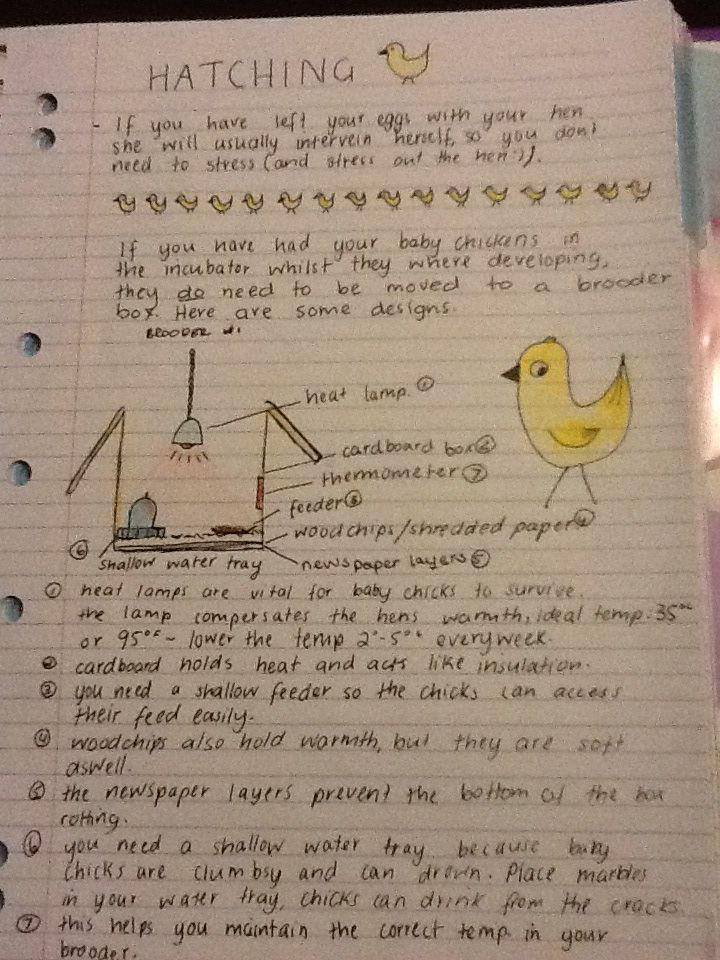 HATCHING
- If you have left your eggs with your hen
she will usually intervein herself, so you don't
need to stress (and stress out the hen!).
If you have had your baby chickens in
the incubator whilst they where developing,
they do need to be moved to a brooder
box. Here are some designs.
BROODER #1
heat lamp. ①
cardboard box ②
thermometer ⑦
feeder ③
woodchips/shredded paper ④
⑥ shallow water tray
newspaper layers ⑤
① heat lamps are vital for baby chicks to survive.
the lamp compersates the hens warmth, ideal temp: 35°C
or 95°F - lower the temp 2°-5° everyweek.
② cardboard holds heat and acts like insulation.
③ you need a shallow feeder so the chicks can access
their feed easily.
④ woodchips also hold warmth, but they are soft
aswell.
⑤ the newspaper layers prevent the bottom of the box
rotting.
⑥ you need a shallow water tray because baby
chicks are clumbsy and can drown. Place marbles
in your water tray, chicks can drink from the cracks
⑦ this helps you maintain the correct temp in your
brooder.